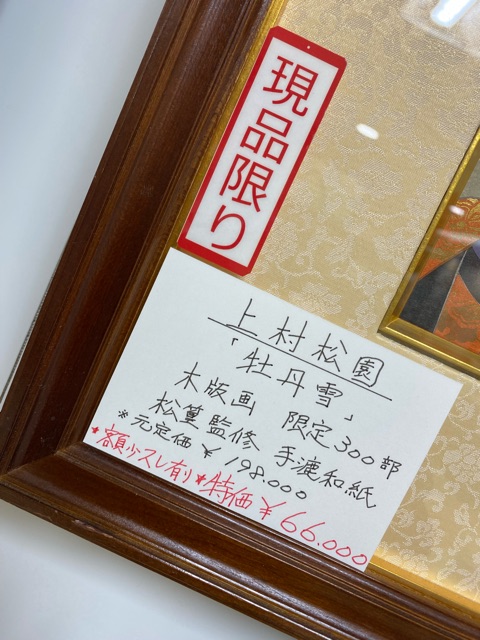 現品限り
上村松園
「牡丹雪」
木版画 限定300部
松篁監修 手漉和紙
※元定価 ¥198.000
*額少スレ有り*特価¥66.000